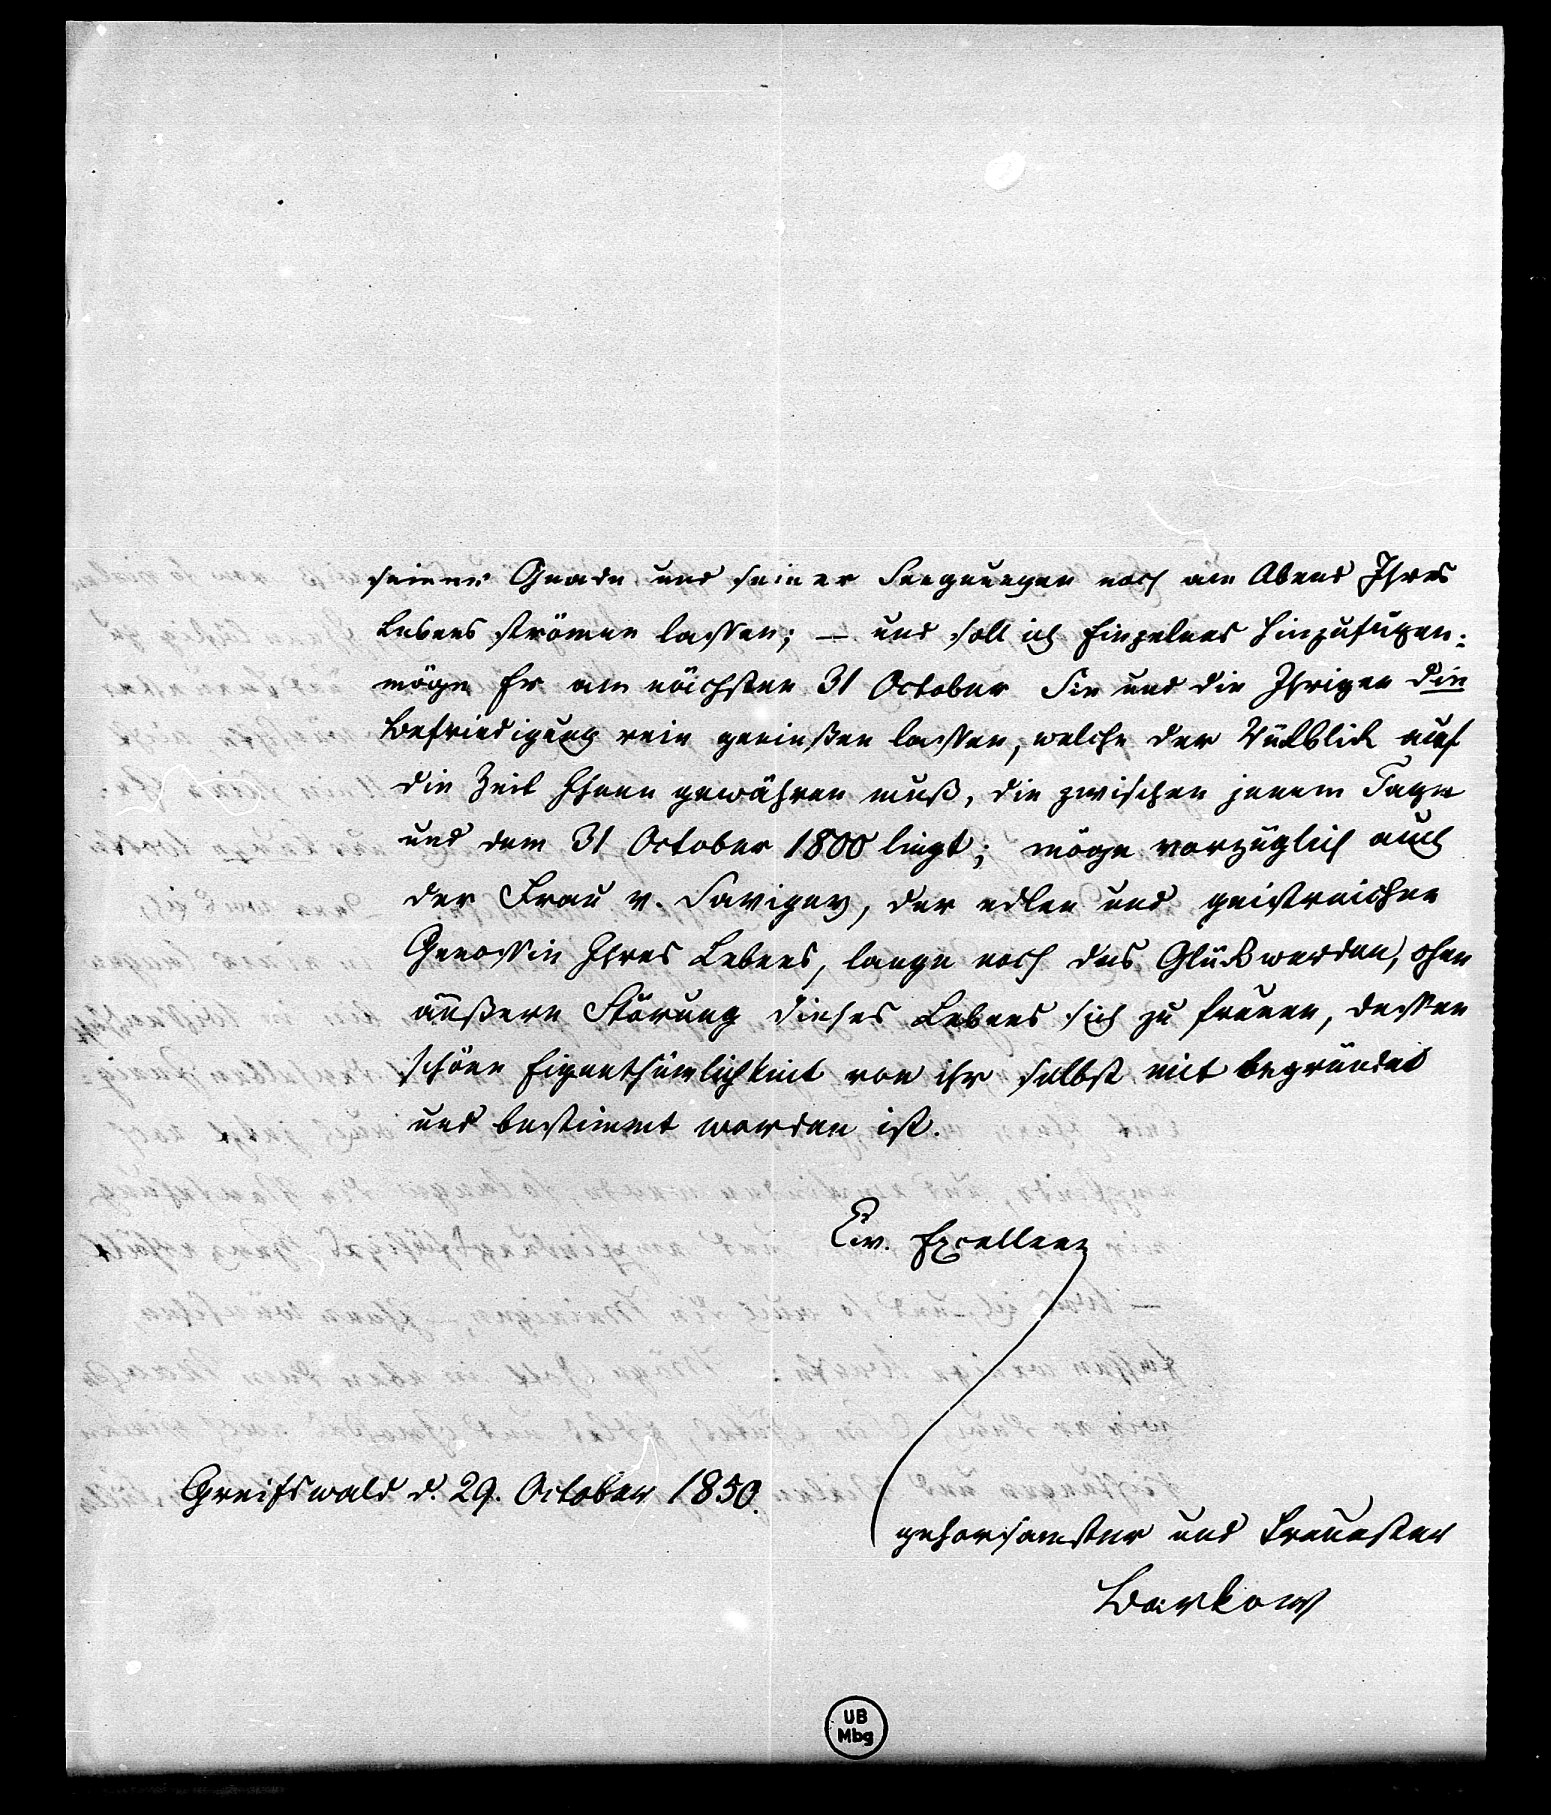 seiner Gnade und seiner Seegnungen noch am Abend Ihres
Lebens strömen lassen; – und soll ich Einzelnes hinzufügen:
möge Er am nächsten 31 October Sie und die Ihrigen die
Befriedigung rein genießen lassen, welche der Rückblick auf
die Zeit Ihnen gewähren muß, die zwischen jenem Tage
und dem 31 October 1800 liegt; möge vorzüglich auch
der Frau v. Savigny, der edlen und geistreichen
Genossin Ihres Lebens, lange noch das Glück werden, ohne
äußere Störung dieses Lebens sich zu freuen, dessen
schöne Eigenthümlichkeit von ihr selbst mit begründet
und bestimmt worden ist.
Ew. Excellenz
Greifswald d. 29. October 1850.
gehorsamster und treuester
Barkow
UB
Mbg